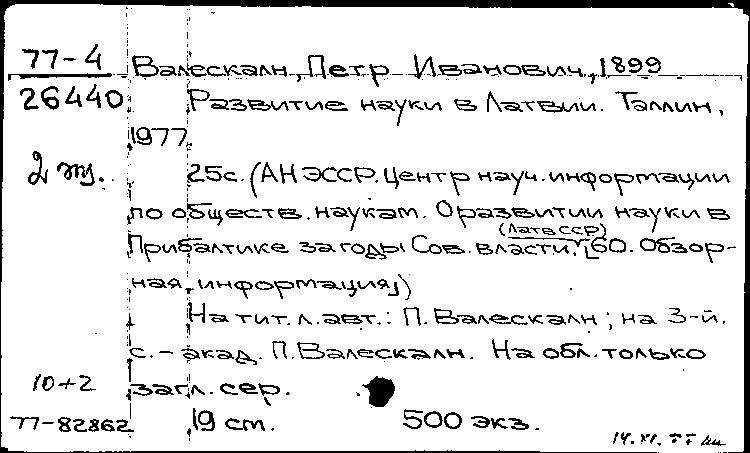 77-4 Валескалн, Петр Иванович, 1899
26440 Развитие науки в Латвии. Таллин,
1977
2 эк. 25с. (АН ЭССР. Центр науч. информации
по обществ. наукам. О развитии науки в
(Латв ССР)
Прибалтике за годы Сов. власти. [60. Обзор-
ная информация])
На тит. л. авт.: П. Валескалн; на 3-й
с. - акад. П. Валескалн. На обл. только
10+2 загл. сер.
77-82862 19 ст. 500 экз.
14.XI.77